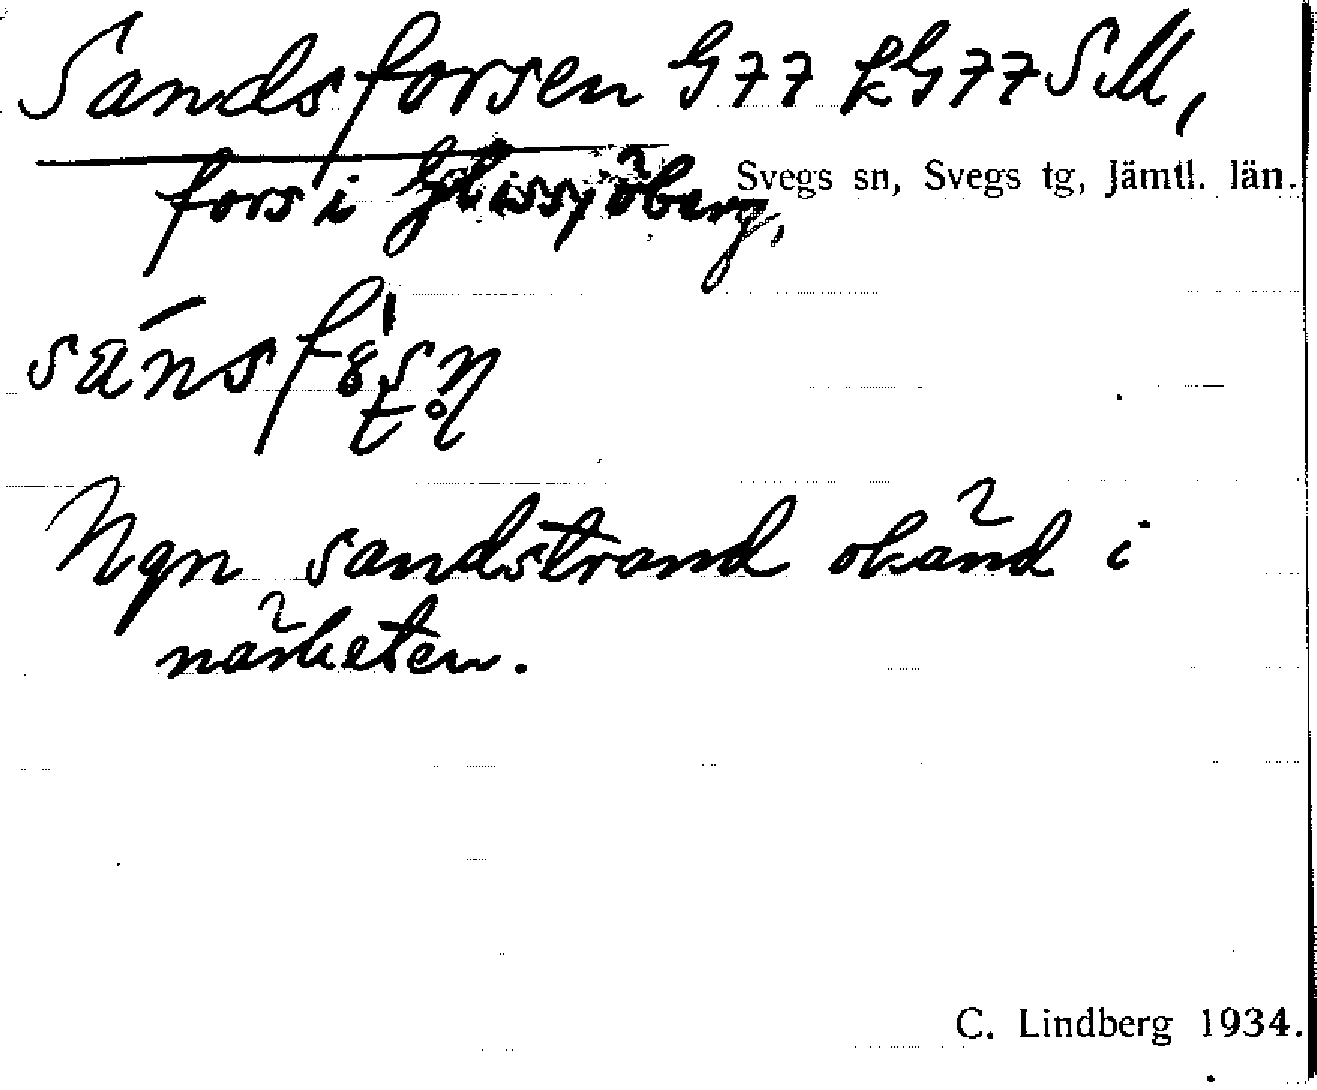 Sandsforsen G77 kG77 SM,
fors i Glissjöberg, Svegs sn, Svegs tg, Jämtl. län.
Ngn sandstrand okänd i
närheten.
C. Lindberg 1934.